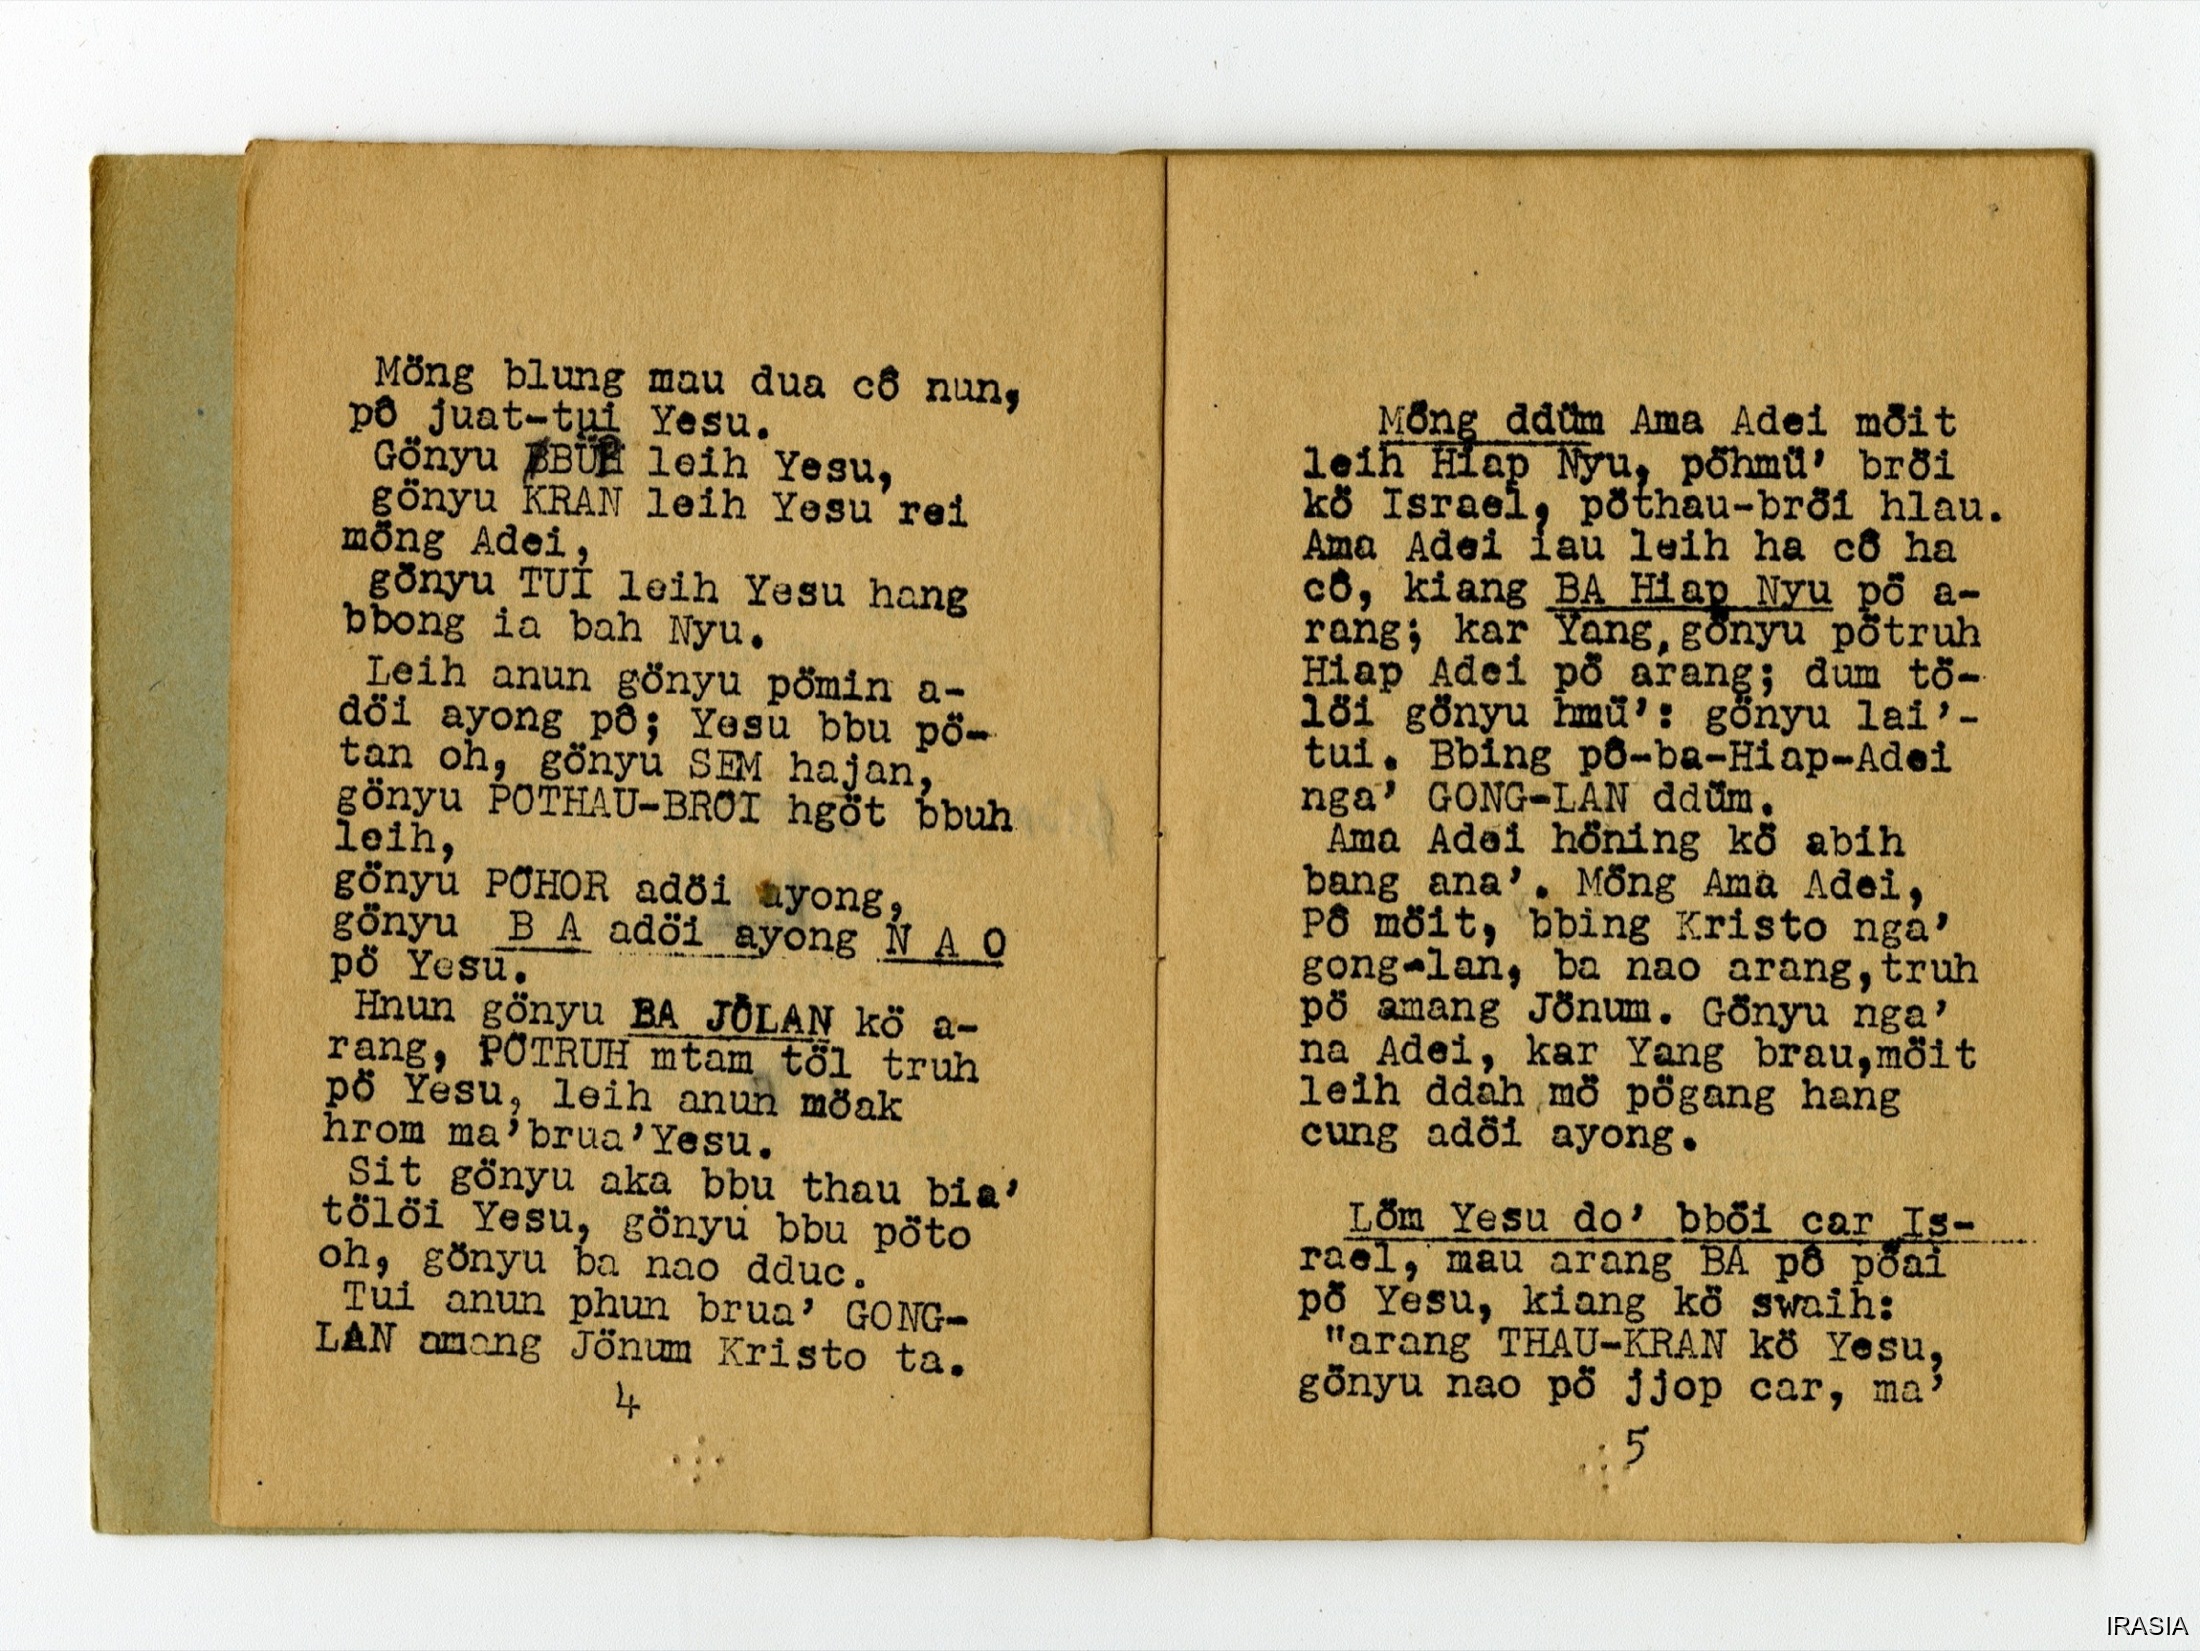 Möng blung mau dua cô nun,
pô juat-tui Yesu.
Gönyu BBÜH leih Yesu,
gönyu KRAN leih Yesu rei
möng Adei,
gönyu TUI leih Yesu hang
bbong ia bah Nyu.
Leih anun gönyu pömin a-
döi ayong pô; Yesu bbu pö-
tan oh, gönyu SEM hajan,
gönyu PÖTHAU-BRÖI hgöt bbuh
leih,
gönyu PÖHOR adöi ayong,
gönyu B A adöi ayong N A O
pö Yesu.
Hnun gönyu BA JÖLAN kö a-
rang, PÖTRUH mtam töl truh
pö Yesu, leih anun möak
hrom ma’brua’Yesu.
Sit gönyu aka bbu thau bia’
tölöi Yesu, gönyu bbu pöto
oh, gönyu ba nao dduc.
Tui anun phun brua’ GONG-
LAN amang Jönum Kristo ta.
4
Möng ddüm Ama Adei möit
leih Hiap Nyu, pöhmü’ bröi
kö Israel, pöthau-bröi hlau.
Ama Adei iau leih ha cô ha
cô, kiang BA Hiap Nyu pö a-
rang; kar Yang, gönyu pötruh
Hiap Adei pö arang; dum tö-
löi gönyu hmü’: gönyu lai’-
tui. Bbing pô-ba-Hiap-Adei
nga’ GONG-LAN ddüm.
Ama Adei höning kö abih
bang ana’. Möng Ama Adei,
Pô möit, bbing Kristo nga’
gong-lan, ba nao arang,truh
pö amang Jönum. Gönyu nga’
na Adei, kar Yang brau,möit
leih ddah mö pögang hang
cung adöi ayong.
Löm Yesu do’ bböi car Is-
rael, mau arang BA pô pöai
pö Yesu, kiang kö swaih:
"arang THAU-KRAN kö Yesu,
gönyu nao pö jjop car, ma’
5
IRASIA